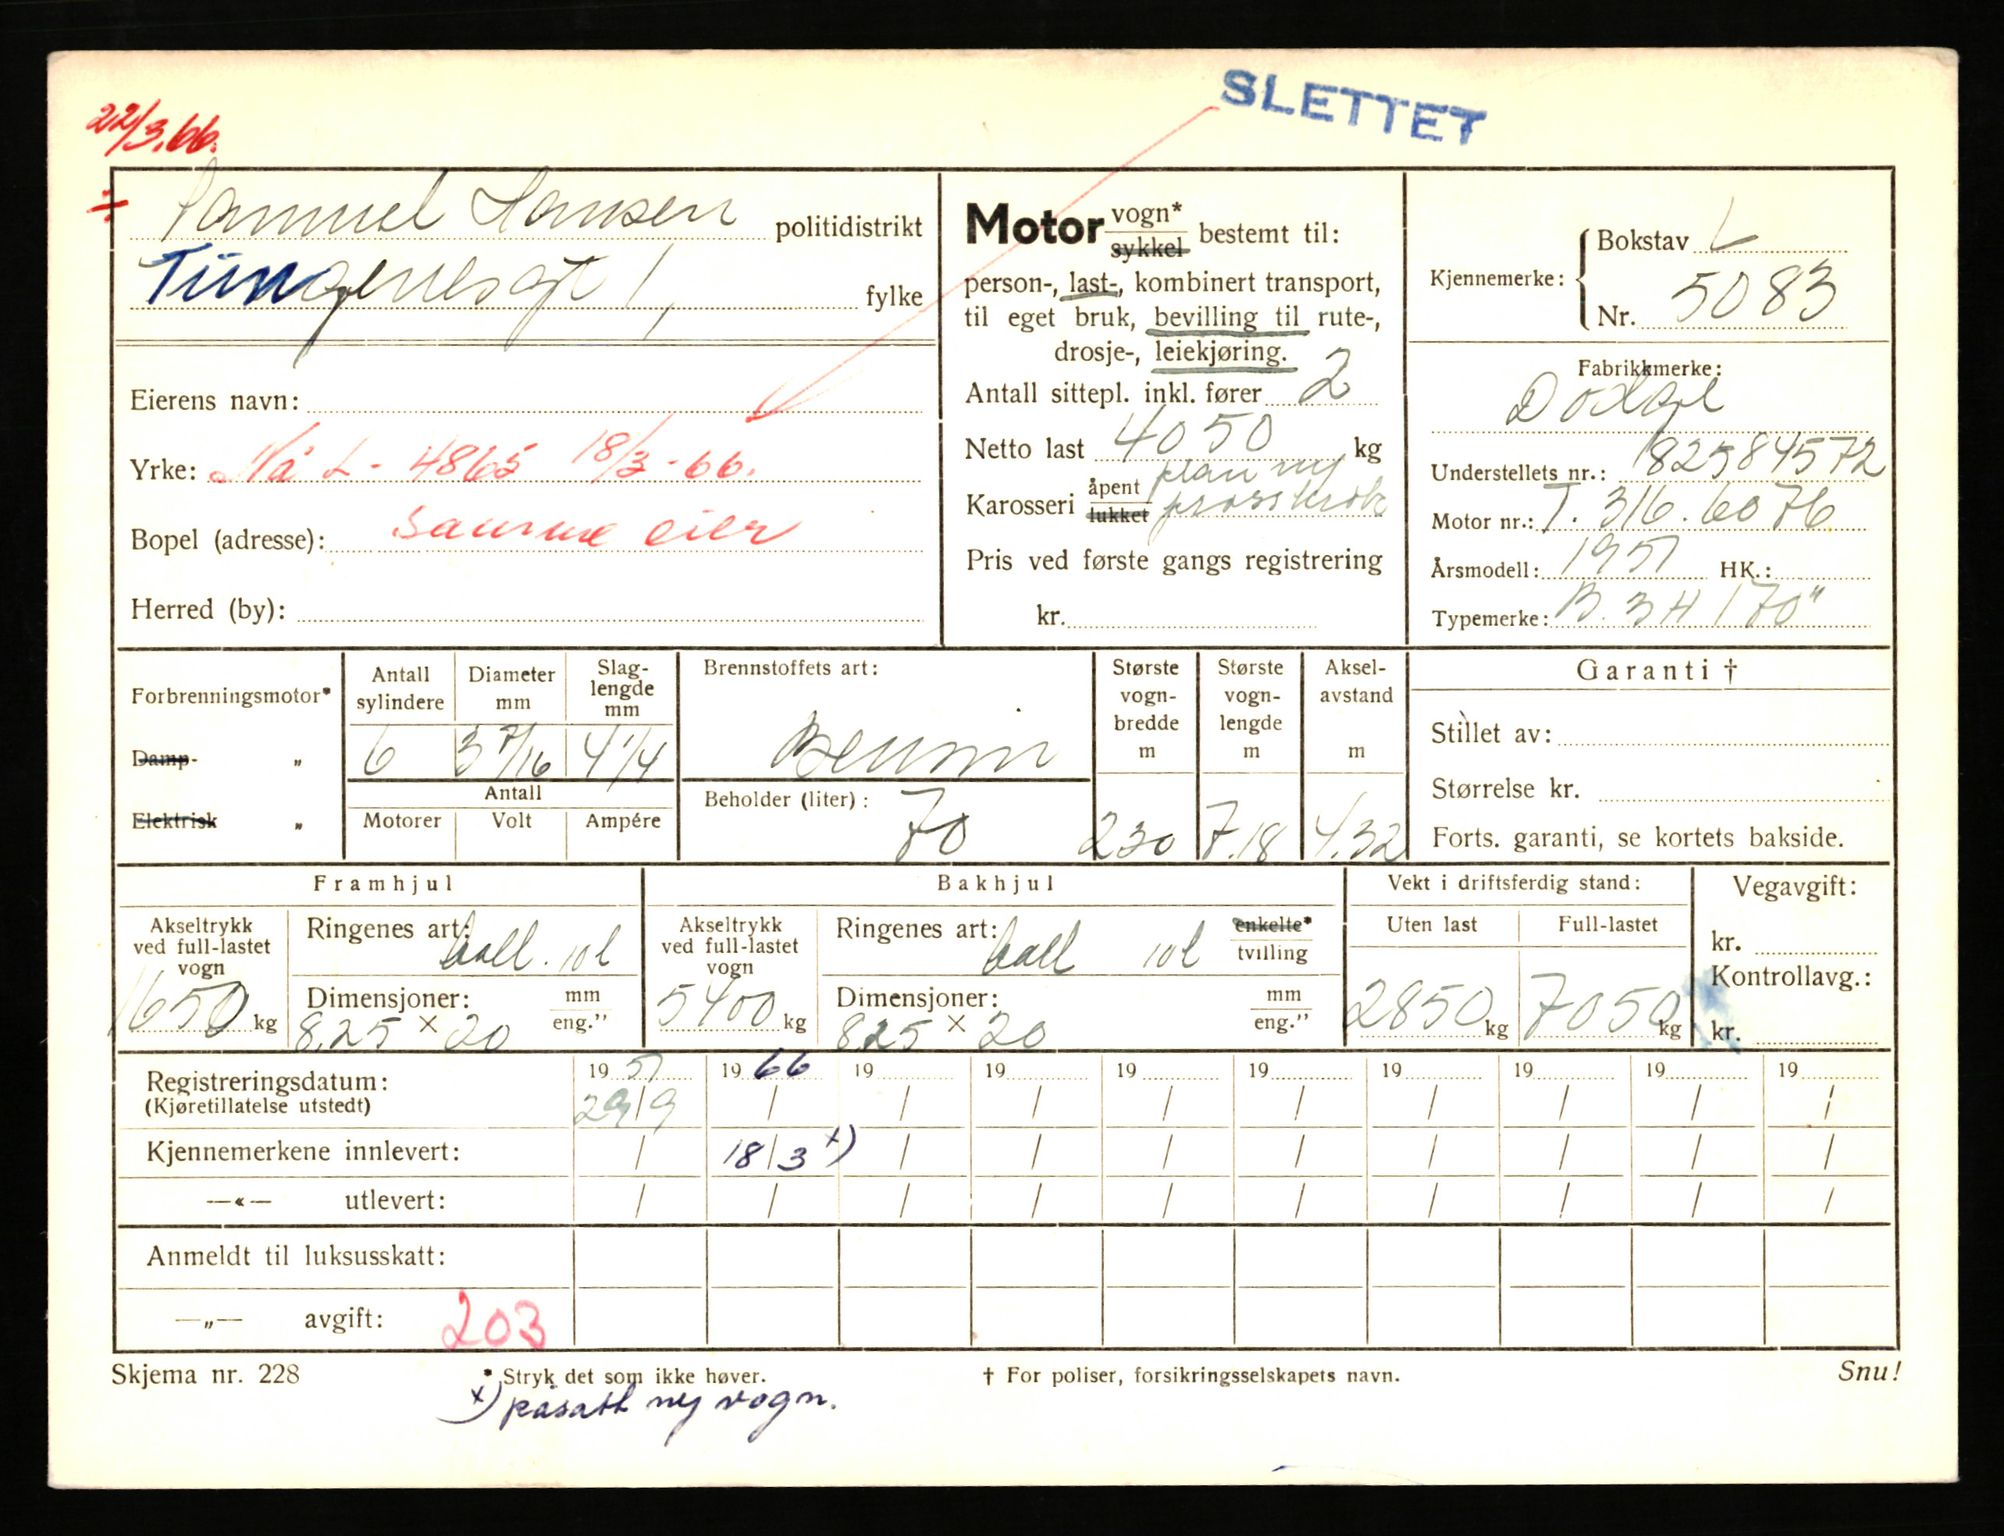 SLETTET
22/3.66.
÷ Samuel Hansen politidistrikt
Tungenesgt 1, fylke
Eierens navn:
Yrke: Nå L - 4865 18/3-66.
Bopel (adresse): samme eier
Herred (by):
Motor vogn* sykkel bestemt til:
person-, last-, kombinert transport,
til eget bruk, bevilling til rute-,
drosje-, leiekjøring.
Antall sittepl. inkl. fører 2
Netto last 4050 kg
Karosseri åpent lukket plan ny
Pris ved første gangs registrering
kr.
Kjennemerke: Bokstav L
Nr. 5083
Fabrikkmerke:
Dodge
Understellets nr.: 82584572
Motor nr.: T. 316.6076
Årsmodell: 1951 HK.:
Typemerke: B. 3 H 170"
Forbrenningsmotor*
Damp- "
Elektrisk "
Antall sylindere 6
Diameter mm 3 7/16
Slaglengde mm 4 1/4
Antall
Motorer Volt Ampére
Brennstoffets art:
Bensin
Beholder (liter): 70
Største vognbredde m 230
Største vognlengde m 7.18
Akselavstand m 4.32
Garanti †
Stillet av:
Størrelse kr.
Forts. garanti, se kortets bakside.
Framhjul
Akseltrykk ved full-lastet vogn 1650 kg
Ringenes art: ball. 10 l
Dimensjoner: mm eng."
8.25 × 20
Bakhjul
Akseltrykk ved full-lastet vogn 5400 kg
Ringenes art: ball 10 l enkelte* tvilling
Dimensjoner: mm eng."
825 × 20
Vekt i driftsferdig stand:
Uten last Full-lastet
2850 kg 7050 kg
Vegavgift:
kr.
Kontrollavg.:
kr.
Registreringsdatum: 19 51 19 66 19 19 19 19 19 19 19 19
(Kjøretillatelse utstedt) 29/9 / / / / / / / / /
Kjennemerkene innlevert: / 18/3 x) / / / / / / / /
—«— utlevert: / / / / / / / / / /
Anmeldt til luksusskatt:
—„— avgift: 203
Skjema nr. 228 * Stryk det som ikke høver. † For poliser, forsikringsselskapets navn. Snu!
x) påsatt ny vogn.